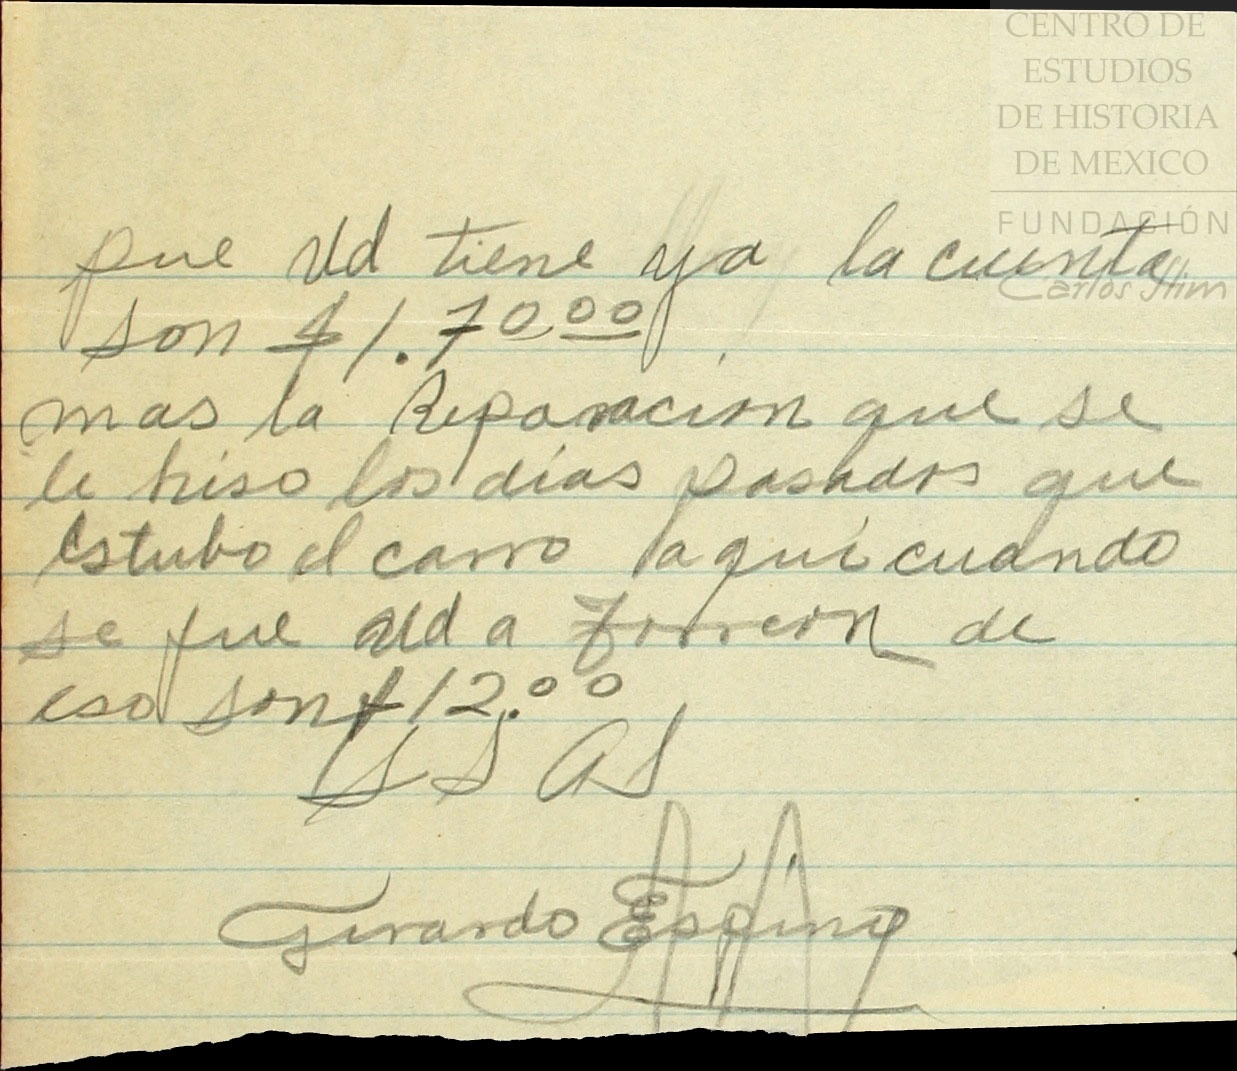 CENTRO DE
ESTUDIOS
DE HISTORIA
DE MEXICO
FUNDACIÓN
Carlos Slim
que Ud tiene ya la cuenta
son $1.70.00
mas la Reparacion que se
le hiso los días pasados que
Estubo el carro aquí cuando
se fue Ud a Torreon de
eso son $12.00
S S
Gerardo Espino